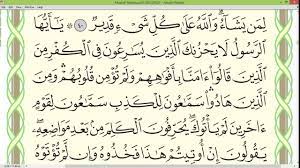 لِمَن يَشَآءُ وَٱللَّهُ عَلَىٰ كُلِّ شَىْءٍ قَدِيرٌ ٤٠ يَـٰٓأَيُّهَا
ٱلرَّسُولُ لَا يَحْزُنكَ ٱلَّذِينَ يُسَـٰرِعُونَ فِى ٱلْكُفْرِ مِنَ
ٱلَّذِينَ قَالُوٓا۟ ءَامَنَّا بِأَفْوَٰهِهِمْ وَلَمْ تُؤْمِن قُلُوبُهُمْ وَمِنَ
ٱلَّذِينَ هَادُوا۟ سَمَّـٰعُونَ لِلْكَذِبِ سَمَّـٰعُونَ لِقَوْمٍ
ءَاخَرِينَ لَمْ يَأْتُوكَ يُحَرِّفُونَ ٱلْكَلِمَ مِنۢ بَعْدِ مَوَاضِعِهِۦ
يَقُولُونَ إِنْ أُوتِيتُمْ هَـٰذَا فَخُذُوهُ وَإِن لَّمْ تُؤْتَوْهُ